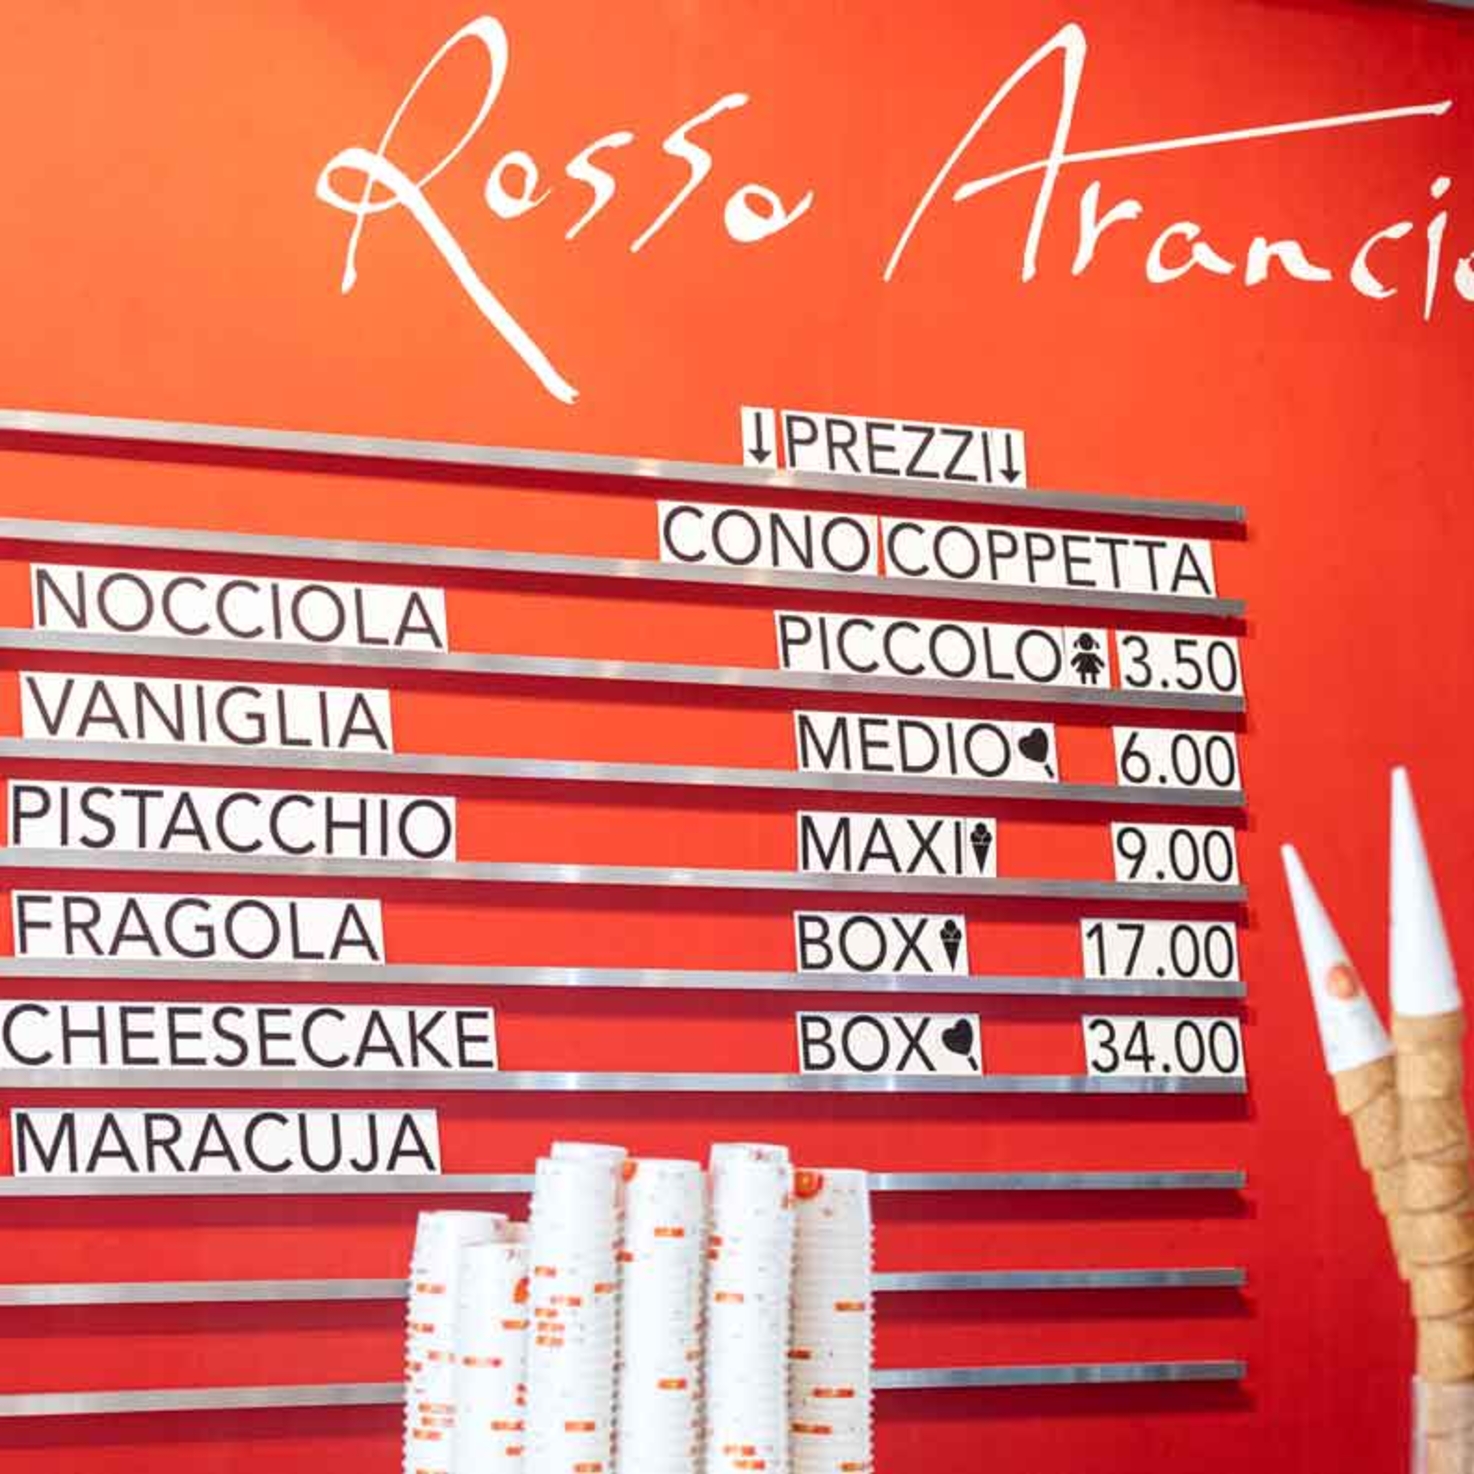 Rosso Arancio
↓PREZZI↓
CONO COPPETTA
NOCCIOLA
PICCOLO 3.50
VANIGLIA
MEDIO 6.00
PISTACCHIO
MAXI 9.00
FRAGOLA
BOX 17.00
CHEESECAKE
BOX 34.00
MARACUJA